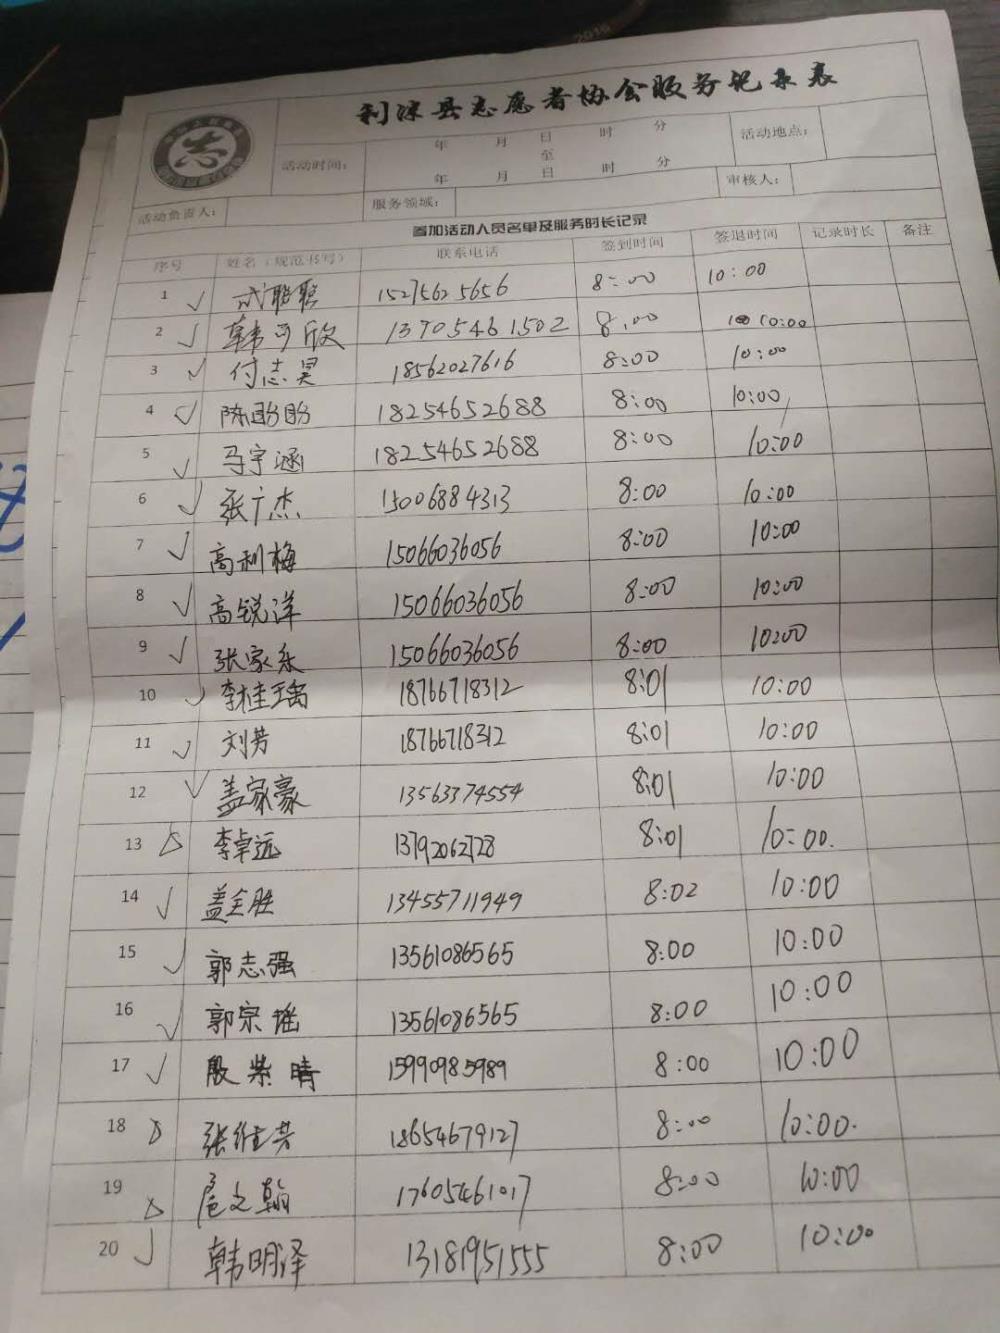 利津县志愿者协会服务记录表
志
活动时间： 年 月 日 时 分 活动地点：
至
年 月 日 时 分
活动负责人： 服务领域： 审核人：
参加活动人员名单及服务时长记录
序号 姓名（规范书写） 联系电话 签到时间 签退时间 记录时长 备注
1 ✓ 15275625656 8:00 10:00
2 ✓ 韩可欣 13705461502 8:00 10:00
3 ✓ 付志昊 18562027616 8:00 10:00
4 ✓ 陈盼盼 18254652688 8:00 10:00
5 ✓ 马宇涵 18254652688 8:00 10:00
6 ✓ 张广杰 15006884313 8:00 10:00
7 ✓ 高利梅 15066036056 8:00 10:00
8 ✓ 高锐洋 15066036056 8:00 10:00
9 ✓ 张家乐 15066036056 8:00 10:00
10 ✓ 李桂瑀 18766718312 8:01 10:00
11 ✓ 刘芳 18766718312 8:01 10:00
12 ✓ 盖家豪 13563374554 8:01 10:00
13 △ 李卓远 13792062728 8:01 10:00.
14 ✓ 盖全胜 13455711949 8:02 10:00
15 ✓ 郭志强 13561086565 8:00 10:00
16 ✓ 郭宗瑶 13561086565 8:00 10:00
17 ✓ 殷紫晴 15990985989 8:00 10:00
18 △ 张继芸 18654679127 8:00 10:00.
19 △ 扈文翰 17605461017 8:00 10:00
20 ✓ 韩明泽 13181951555 8:00 10:00